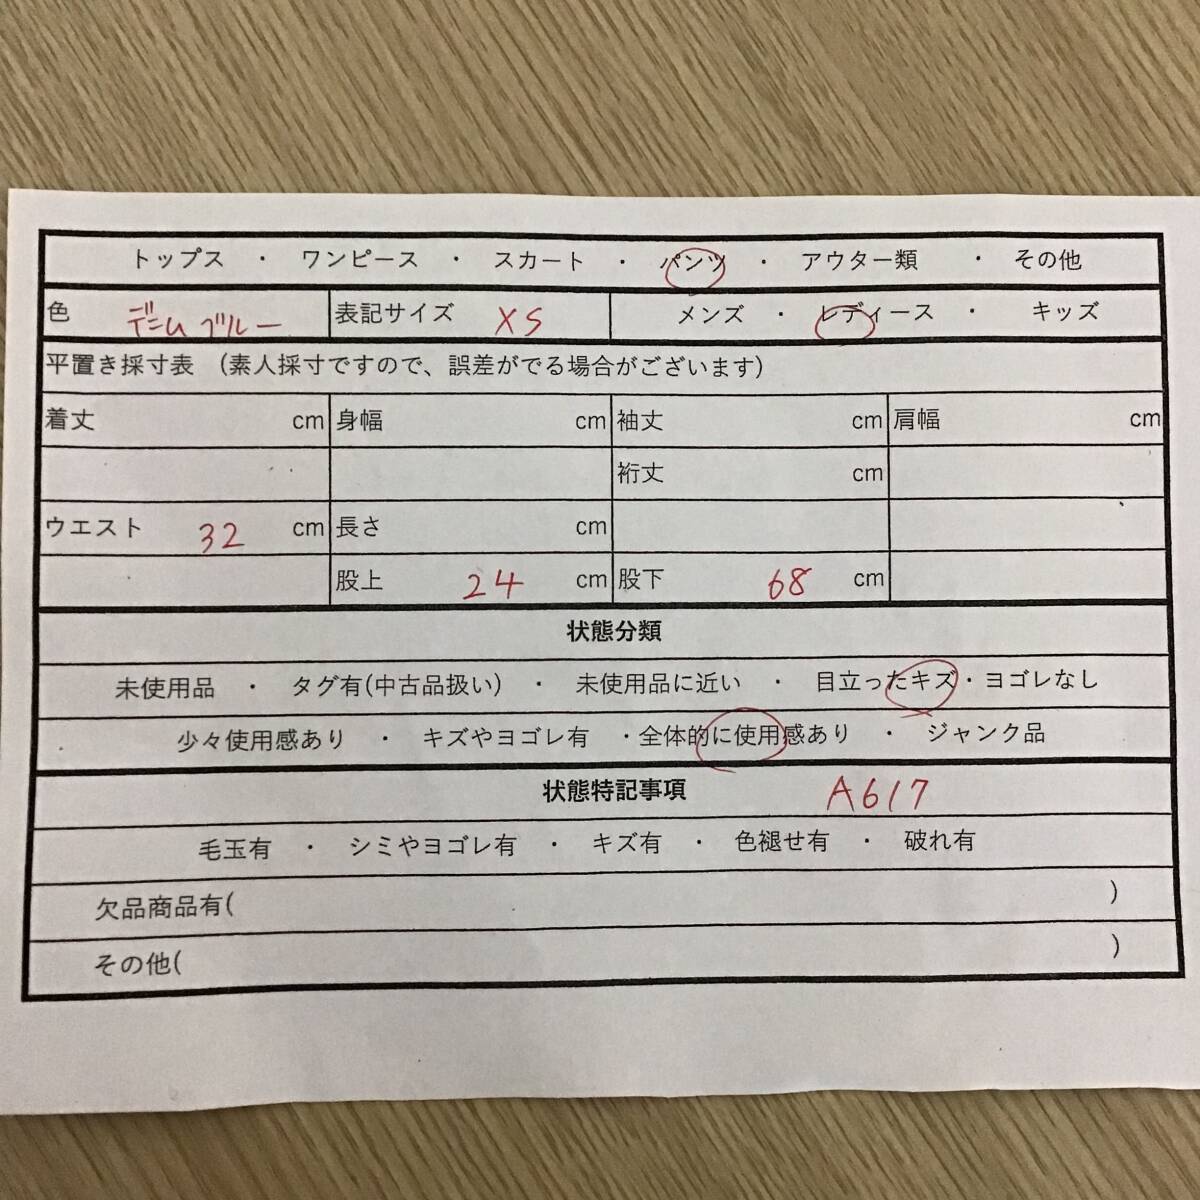 トップス ・ ワンピース ・ スカート ・ パンツ ・ アウター類 ・ その他
色 デニムブルー 表記サイズ XS メンズ ・ レディース ・ キッズ
平置き採寸表 (素人採寸ですので、誤差がでる場合がございます)
着丈 cm 身幅 cm 袖丈 cm 肩幅 cm
裄丈 cm
ウエスト 32 cm 長さ cm
股上 24 cm 股下 68 cm
状態分類
未使用品 ・ タグ有(中古品扱い) ・ 未使用品に近い ・ 目立ったキズ・ヨゴレなし
少々使用感あり ・ キズやヨゴレ有 ・全体的に使用感あり ・ ジャンク品
状態特記事項 A617
毛玉有 ・ シミやヨゴレ有 ・ キズ有 ・ 色褪せ有 ・ 破れ有
欠品商品有( )
その他( )